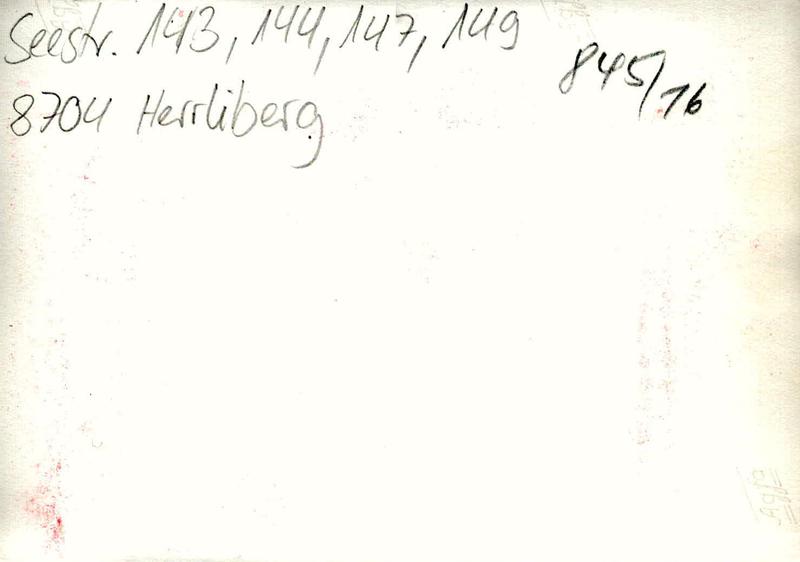 Seestr. 143, 144, 147, 149
845/16
8704 Herrliberg
Agfa